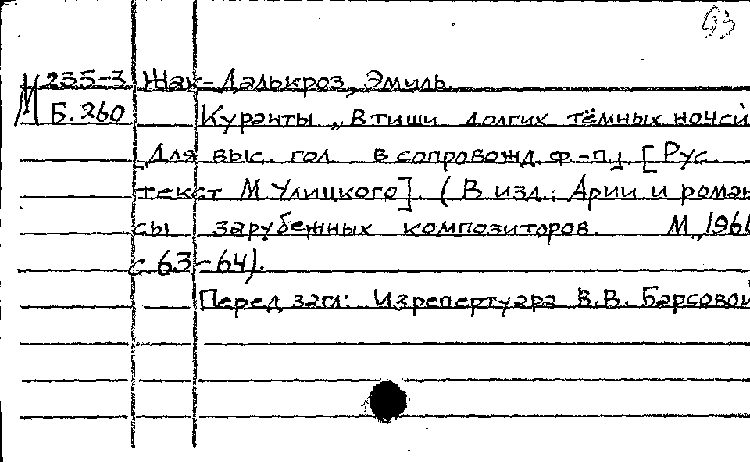 93
М 235-3 Жак-Далькроз, Эмиль.
Б. 260 Куранты „В тиши долгих тёмных ночей
[Для выс. гол. в сопровожд. ф.-п.]. [Рус.
текст М. Улицкого]. (В изд.: Арии и роман
сы зарубежных композиторов. М., 1966
с. 63-64).
Перед загл.: Из репертуара В.В. Барсовой